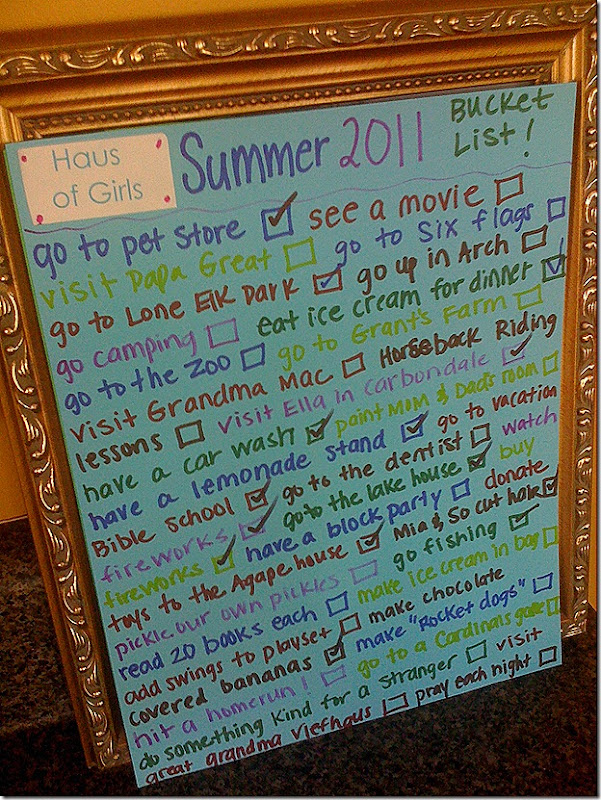 Haus of Girls
Summer 2011 Bucket List!
go to pet store see a movie
visit Papa Great go to Six flags
go to Lone Elk Park go up in Arch
go camping eat ice cream for dinner
go to the zoo go to Grant's Farm
visit Grandma Mac Horseback Riding
lessons visit Ella in Carbondale
have a car wash paint Mom & Dad's room
have a lemonade stand go to vacation
Bible School go to the dentist watch
fireworks go to the lake house buy
fireworks have a block party donate
toys to the Agape house Mia & So cut hair
pickle our own pickles go fishing
read 20 books each make ice cream in bag
add swings to playset make chocolate
covered bananas make "Rocket dogs"
hit a homerun! go to a Cardinals game
do something kind for a stranger visit
great grandma Viefhaus pray each night